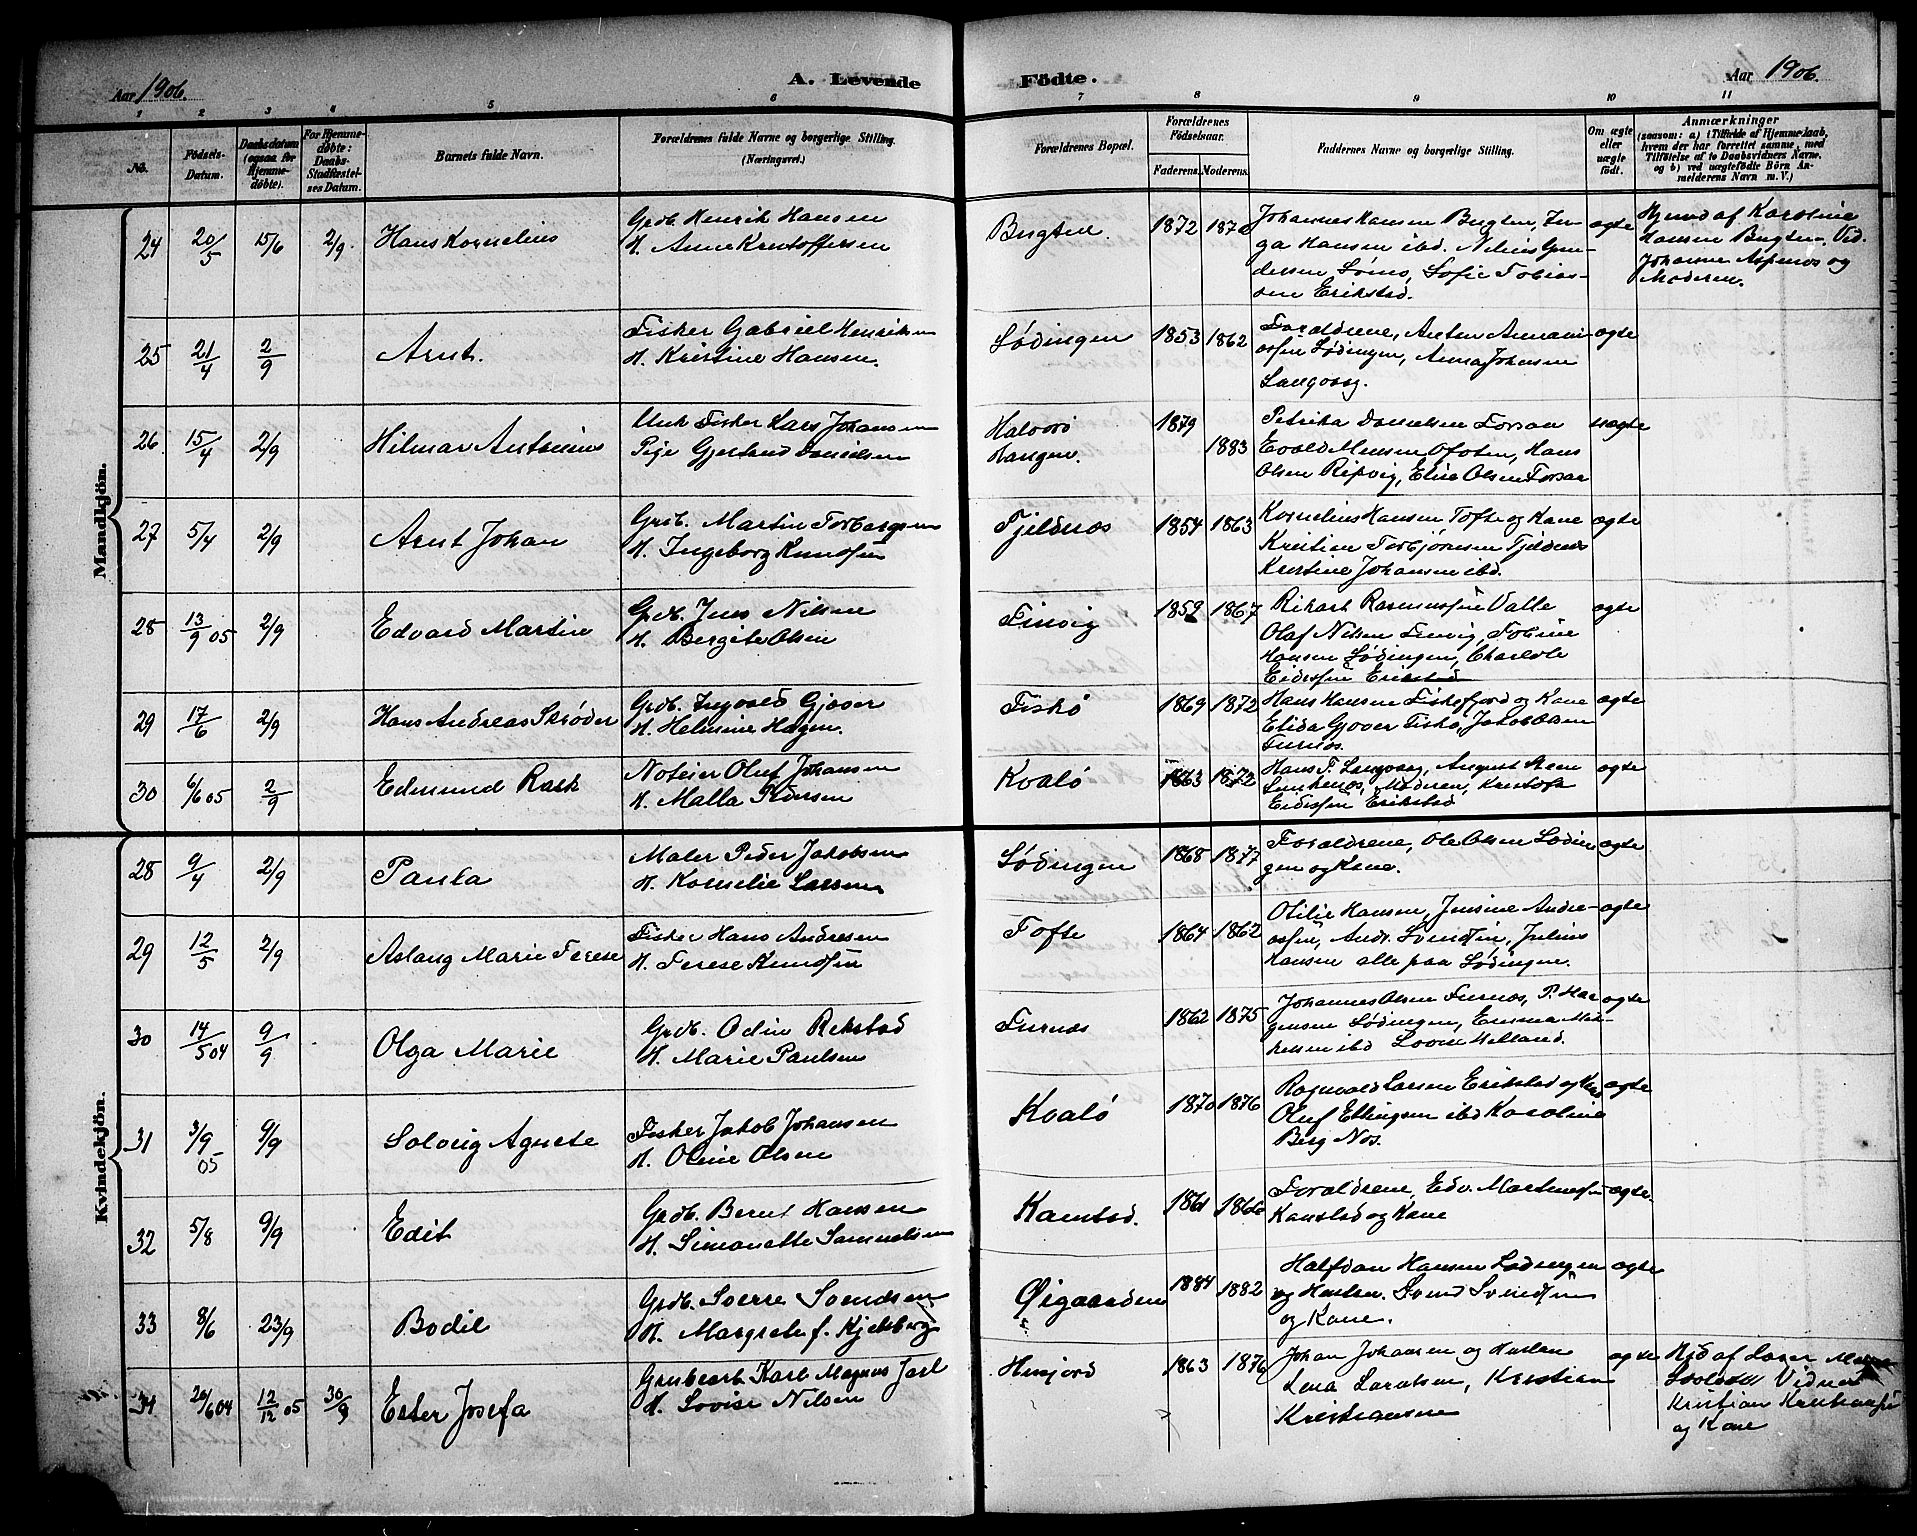 Aar 1906.
A. Levende Födte.
Aar 1906.
1 2 3 4 5 6 7 8 9 10 11
No.
Födsels-
Datum.
Daabsdatum
(ogsaa for
Hjemme-
döbte).
For Hjemme-
döbte:
Daabs-
Stadfæstel-
ses Datum.
Barnets fulde Navn.
Forældrenes fulde Navne og borgerlige Stilling.
(Næringsvei.)
Forældrenes Bopæl.
Forældrenes
Födselsaar.
Faderens. Moderens.
Faddernes Navne og borgerlige Stilling.
Om ægte
eller
uægte
födt.
Anmærkninger
(saasom: a) i Tilfælde af Hjemmedaab,
hvem der har forrettet samme, med
Tilföielse af to Daabsvidners Navne,
og b) ved uægtefödte Börn An-
melderens Navn m. V.)
Mandkjön.
24 20/5 15/6 2/9. Hans Kornelius
Grdb. Henrik Hansen
H. Anne Kristoffersen
Bugten. 1872
Johannes Hansen Bugten, In-
ga Hansen ibd. Nelius Gun-
dersen Lønes, Sofie Tobias-
sen Erikstad.
ægte
Hjemd af Karoline
Hansen Bugten. Vid.
Johanne Aspenes og
Moderen.
25 21/4 2/9 Arnt.
Fisker Gabriel Henriksen
H. Kristine Hansen.
Lødingen 1853 1862
Forældrene, Anton
Lødingen, Anna Johansen
Langvaag.
ægte
26 15/4 2/9 Hilmar Antonius
Unk Fisker Lars Johansen
Pige Gjertrud Danielsen
Halvarø
Hangen. 1879 1883
Petrika Danielsen Forsaa
Evald Monsen Ofoten, Hans
Olsen Repvig, Elise Olsen Forsaa
uægte
27 5/4 2/9 Arnt Johan
Grdb. Martin Torbergsen
H. Ingeborg Knudsen
Fjeldnæs 1854 1863
Kornelius Hansen Tofte og Kone
Kristian Torbjørnsen Fjeldnæs
Kristine Johansen ibd.
ægte
28 13/9 05 2/9 Edvard Martin
Grdb. Jens Nilsen
H. Bergite Olsen
Finvig 1859 1867
Rikart Rasmussen Valle
Olaf Nilsen Finvig, Tobine
Hansen Lødingen, Charlote
Eidissen Erikstad
ægte
29 17/6 2/9 Hans Andreas Skrøder
Grdb. Ingvald Gjøver
H. Helmine Hagen.
Fiskø 1869 1872
Hans Hansen Fiskefjord og Kone
Elida Gjøver Fiskø, Jakob Olsen
Furnes.
ægte
30 6/6 05 2/9 Edmund Rask
Noteier Oluf Johansen
H. Malla Pedersen
Kvalø 1863 1872
Hans F. Langvaag, August Steen
Moderen, Kristofa
Eidissen Erikstad
ægte
Kvindekjön.
28 9/4 2/9 Paula
Maler Peder Jakobsen
H. Kornelie Larsen
Lødingen 1868 1877
Forældrene, Ole Olsen Lødin
gen og Kone.
ægte
29 12/5 2/9 Aslaug Marie Terese
Fisker Hans Andresen
H. Terese Knudsen
Tofte 1864 1862
Otilie Hansen, Jensine Andre-
assen, Andr. Svendsen, Julius
Hansen alle paa Lødingen.
ægte
30 14/5 04 9/9 Olga Marie
Grdb. Odin Rekstad
H. Marie Paulsen
Furnæs 1862 1875
Johannes Olsen Furnæs, P. Haa
gensen Lødingen, Emma Mik-
kelsen ibd Lovise Helland.
ægte
31 3/9 05 9/9 Solveig Agnete
Fisker Jakob Johansen
H. Oline Olsen
Kvalø 1870 1876
Ragnvald Larsen Erikstad og Kone
Oluf Ellingsen ibd Karoline
Berg Nes.
ægte
32 5/8 9/9 Edit
Grdb. Bernt Hansen
H. Simonette Samuelsen
Kanstad. 1861 1866
Forældrene, Edv. Martinussen
Kanstad og Kone
ægte.
33 8/6 23/9 Bodil
Grdb. Sverre Svendsen
H. Margrete f. Kjelsberg
Øigaarden 1884 1882
Halfdan Hansen Lødingen
og Hustru. Svend Svendsen
og Kone.
ægte
34 20/6 04 12/12 05 30/9 Ester Josefa
Grubearb Karl Magnus Jarl
H. Lovise Nilsen
Husjord 1863 1876
Johan Johansen og Hustru
Lena Larsen, Kristian
Kristiansen
ægte
Hjd af Laser
Vidner
Kristian Kristiansen
og Kone